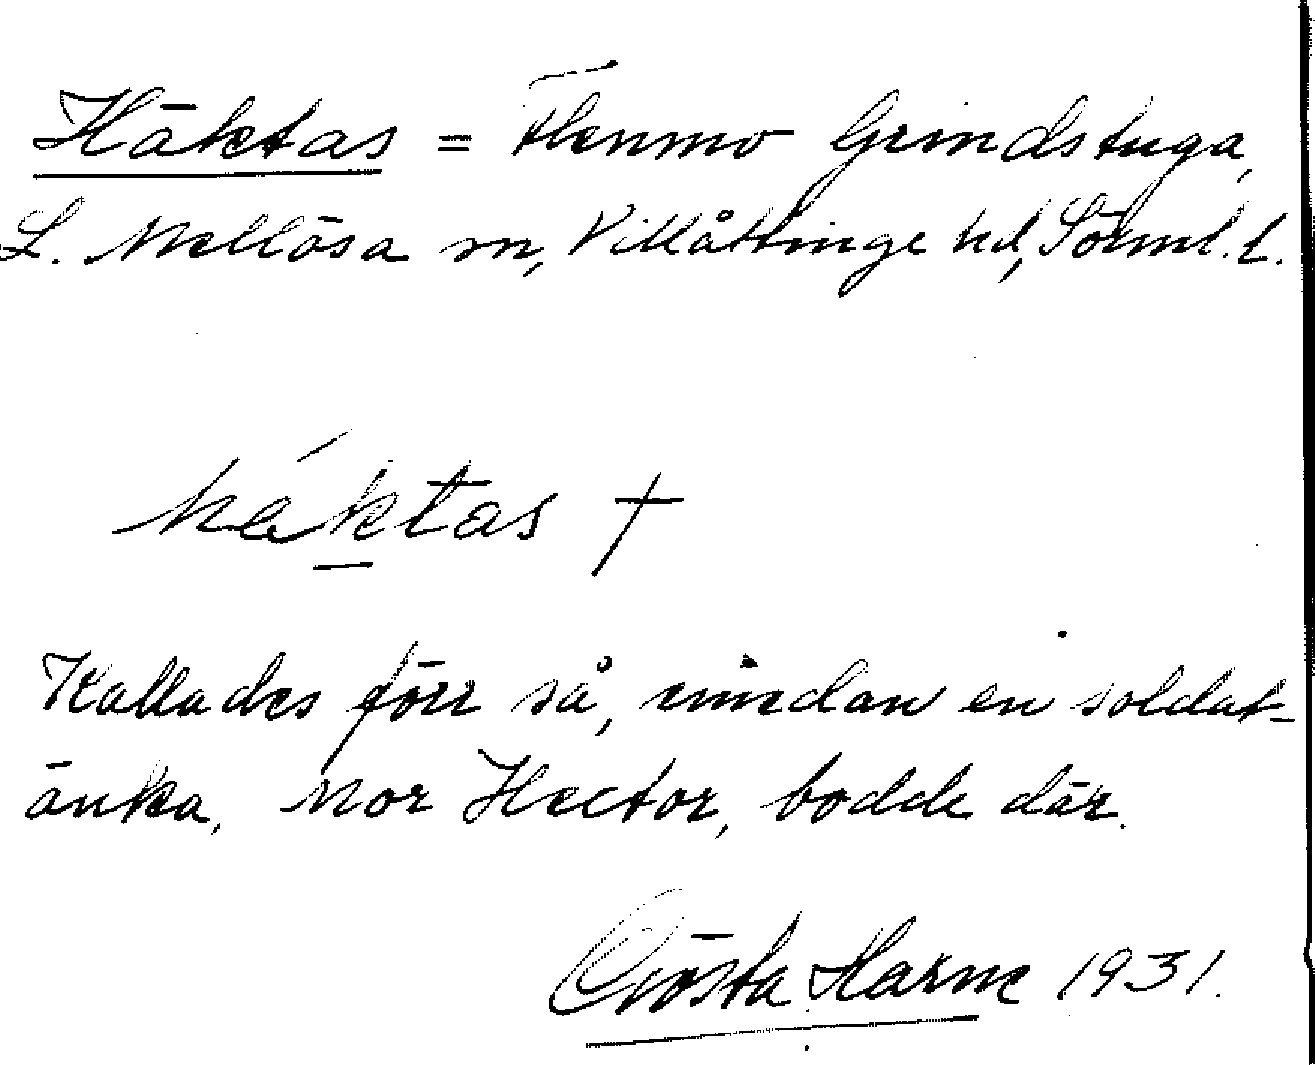 Häktas = Flenmo Grindstuga,
L. Mellösa sn, Villåttinge hd, Sörml. l.
häktas †
Kallades förr så, emedan en soldat-
änka, Mor Hector, bodde där.
Gösta Harne 1931.